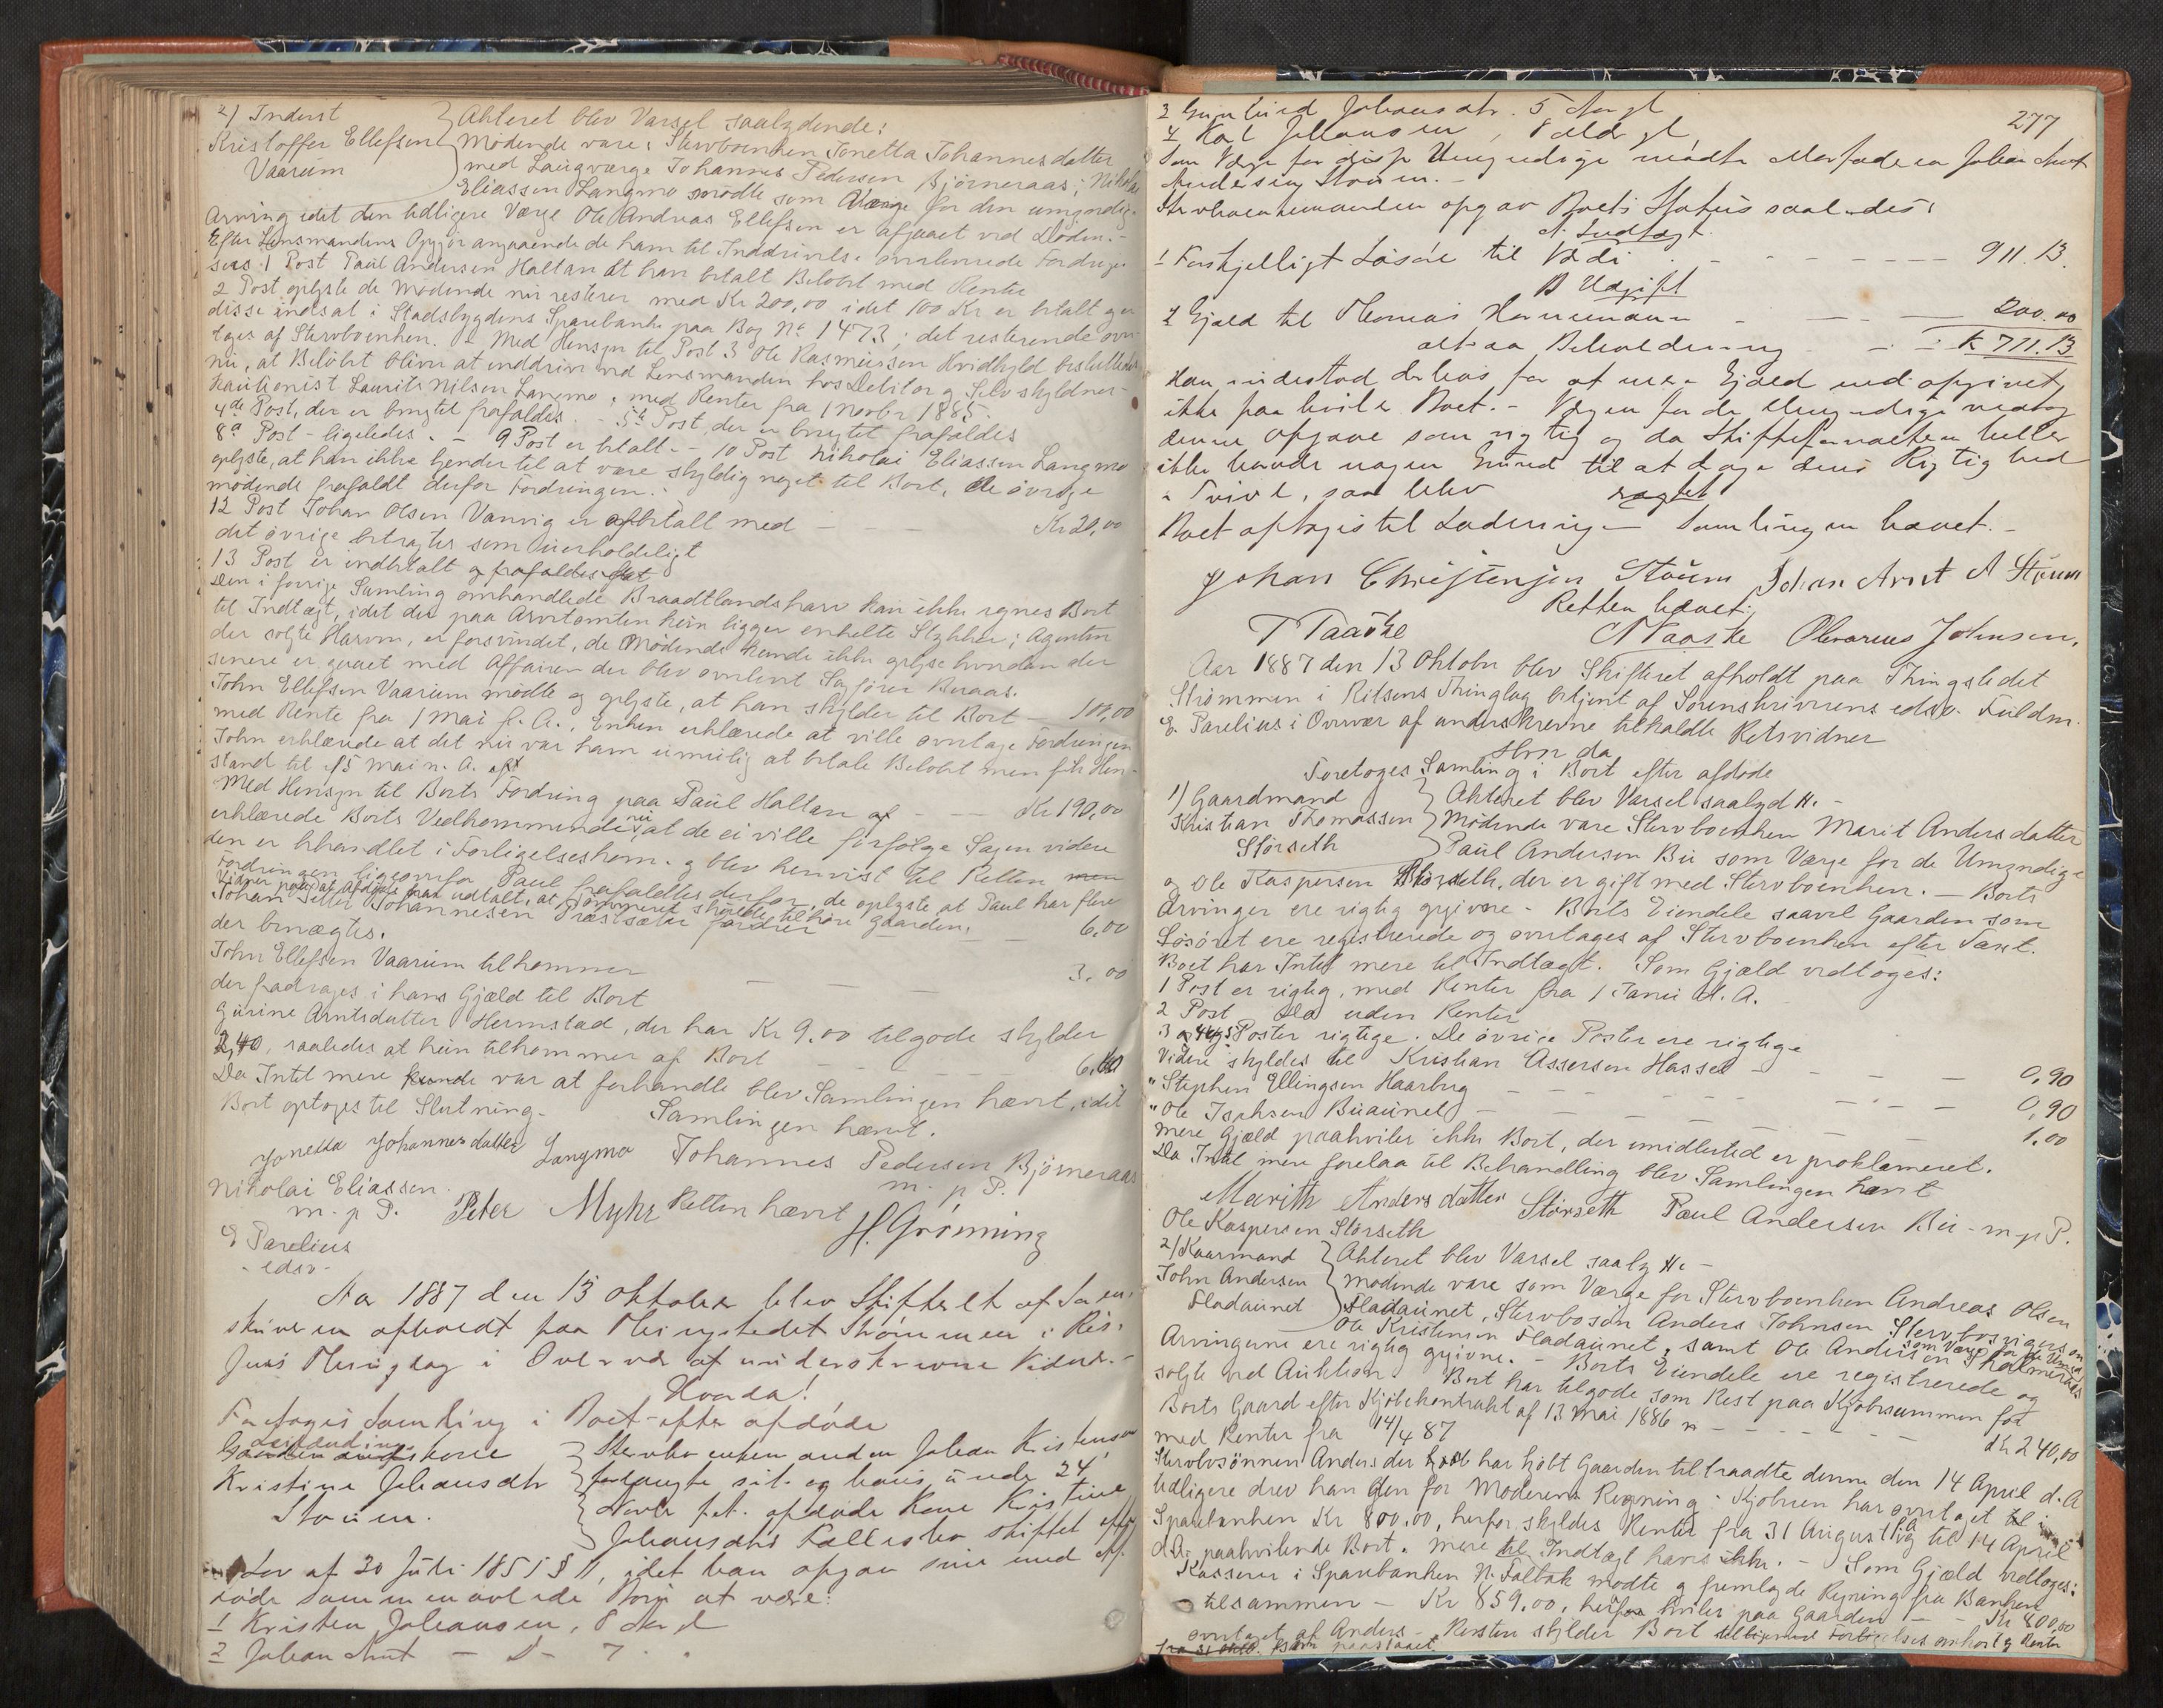 2) Inderst
Kristoffer Ellefsen
Vaarum
Akteret blev Varsel saalydende:
Mødende vare: Stervboenken Jonetta Johannesdatter
med Laugværge Johannes Pedersen Bjørneraas; Nikolai
Eliassen Langmo mødte som Værge for den umyndige
Arving idet den tidligere Værge Ole Andreas Ellefsen er afgaaet ved Døden.-
Efter Lensmandens Opgjør angaaende de ham til Inddrivelse overleverede Fordringer
sees 1 Post Paul Andersen Haltan at han betalt Beløbet med Rente
2 Post oplyste de Mødende nu resterer med Kr 200,00 idet 100 Kr er betalt og er
disse indsat i Stadsbygdens Sparebanke paa Bog No 1473; det resterende over-
tages af Stervboenken. Med Hensyn til Post 3 Ole Rasmussen Hvidhyld besluttedes
nu, at Beløbet bliver at inddrive ved Lensmanden hos Debitor og Selvskyldner-
kautionist Laurits Nilsen Langmo, med Renter fra 1 Novbr 1885.
4de Post, der er benegtet frafaldes. - 5te Post, der er benegtet frafaldes
8de Post - ligeledes. - 9 Post er betalt. - 10 Post Nikolai Eliassen Langmo
oplyste, at han ikke kjender til at være skyldig noget til Boet, de øvrige
mødende frafaldt derfor Fordringen.
12 Post Johan Olsen Vanvig er afbetalt med - - - Kr 20,00
det øvrige betragtes som uerholdeligt
13 Post er indbetalt og frafaldes
Den i forrige Samling omhandlede Braadtlandsharv kan ikke regnes Boet
til Indtægt, idet der paa Arvetomten kun ligger enkelte Stykker; Agenten
der solgte Harven, er forsvindet, de Mødende kunde ikke oplyse hvordan det
senere er gaaet med Affairen der blev overleveret Sagfører Beraas.
John Ellefsen Vaarum mødte og oplyste, at han skylder til Boet - 104,00
med Rente fra 1 Mai f. A., Enken erklærede at ville overtage Fordringen
John erklærede at det nu var ham umulig at betale Beløbet men fik Hen-
stand til 15 Mai n. A.
Med Hensyn til Boets Fordring paa Paul Haltan af - - - Kr 190,00
erklærede Boets Vedkommende nu at de ei ville forfølge Sagen videre
den er behandlet i Forligelseskom. og blev henvist til Retten
Fordringen ligeoverfor Paul frafaldtes derfor, de oplyste at Paul har flere
Vidner paa at Afdøde har udtalt, at Tømmeret skulde tilhøre Gaarden.
Johan Petter Johannesen Præstsæter fordrer - - 6,00
der benægtes.
John Ellefsen Vaarum tilkommer - - - 3,00
der fradrages i hans Gjæld til Boet
Gurine Arntsdatter Hermstad, der har Kr 9.00 tilgode skylder
2,40, saaledes at hun tilkommer af Boet - - - 6,60
Da Intet mere kunde var at forhandle blev Samlingen hævet, idet
Boet optoges til Slutning. Samlingen hævet.
Jonetta Johannesdatter Langmo Johannes Pedersen Bjørneraas
Nikolai Eliassen m. p P.
m. p P. Peter Myhr Retten hævet H. Grønning
E Parelius
- edsv -
Aar 1887 den 13 Oktober blev Skifteret af Soren-
skriveren afholdt paa Thingstedet Strømmen i Ris-
sens Thinglag i Overvær af underskrevne Vidner.-
Hvorda!
Foretoges Samling i Boet efter afdøde
Kone
Kristine Johansdtr
Stoüm.
Stervboenkemanden Johan Kristensen
forlangte sit og hans under 24
Novbr f.A. afdøde Kone Kristine
Johansdtrs Fællesbo skiftet efter
Lov af 30 Juli 1851 § 11, idet han opgav sine med Af-
døde sammenavlede Børn at være:
1 Kristen Johansen, 8 Aar gl
2 Johan Arnt - D - 7.
277
3 Gunhild Johansdtr. 5 Aar gl
4 Karl Johansen,
Som Værge for disse Umyndige mødte Morfaderen Johan Arnt
Andersen Stoum.-
Stervboenkemanden opgav Boets Status saaledes:
A. Indtægt.
1 Forskjelligt Løsøre til Værdi - - - - - 911.13
B Udgift
2 Gjæld til Thomas Hannemann - - - 200.00
altsaa Beholdning - - - K 711.13
Han indestod derhos for at mere Gjæld end opgivet
ikke paahviler Boet.- Værgen for de Umyndige vedtog
denne Opgave som rigtig og da Skifteforvalteren heller
ikke havde nogen Grund til at drage dens Rigtighed
i Tvivl, saa blev
Boet optages til Slutning - Samlingen hævet.-
Johan Christensen Stoum Johan Arnt A Stoum
Retten hævet:
T Taaske N Taaske Olivarius Johnsen.
Aar 1887 den 13 Oktobr blev Skifteret afholdt paa Thingstedet
Strømmen i Ritsens Thinglag betjent af Sorenskriverens edsv. Fuldm.
E. Parelius i Overvær af underskrevne tilkaldte Retsvidner
Hvor da
Foretoges Samling i Boet efter afdøde
1) Gaardmand
Kristian Thomassen
Størseth
Akteret blev Varsel saalyd H. -
Mødende vare Stervboenken Marit Andersdatter
Paul Andersen Bu som Værge for de Umyndige
og Ole Kaspersen Størseth, der er gift med Stervboenken. - Boets
Arvinger ere rigtig opgivne - Boets Eiendele saavel Gaarden som
Løsøret ere registrerede og overtages af Stervboenken efter Taxt.
Boet har Intet mere til Indtægt. Som Gjæld vedtoges:
1 Post er rigtig, med Renter fra 1 Januar d. A.
2 Post do uden Renter
3 4 og 5 Poster rigtige. De øvrige Poster ere rigtige
Videre skyldes til Kristian Assersen Hassel - - - 0,90
" Stephen Ellingsen Haarberg - - - 0,90
" Ole Isaksen Buaunet - - - 1.00
mere Gjæld paahviler ikke Boet, der imidlertid er proklameret.
Da Intet mere forelaa til Behandling blev Samlingen hævet
Marith Andersdatter Størseth Paul Andersen Bu - m p P.
Ole Kaspersen Størseth
2) Kaarmand
John Andersen
Fladaunet
Akteret blev Varsel saaly H. -
Mødende vare som Værge for Stervboenken Andreas Olsen
Fladaunet, Stervbosøn Anders Johnsen Stervbosvigersøn
Ole Kristensen Fladaunet, samt Ole Andersen som Værge for de Umynd
Arvingerne ere rigtig opgivne. - Boets Eiendele ere registrerede og
solgte ved Auktion. Boet har tilgode som Rest paa Kjøbesummen for
Boets Gaard efter Kjøbekontrakt af 13 Mai 1886 - - - Kr 240,00
med Renter fra 14/4 87
Stervbosønnen Anders der har kjøbt Gaarden tiltraadte denne den 14 April d. A
tidligere drev han den for Moderens Regning. Kjøberen har overtaget til
Sparebanken Kr 800.00, herfor skyldes Renter fra 31 August til 14 April
d. A. paahvilende Boet. Mere til Indtægt haves ikke. - Som Gjæld vedtoges:
Kasserer i Sparebanken N. Falbak mødte og fremlagde Regning fra Banken
tilsammen - Kr 859.00, herfra hviler paa Gaarden - - Kr 800,00
overtaget af Anders - Resten skylder Boet